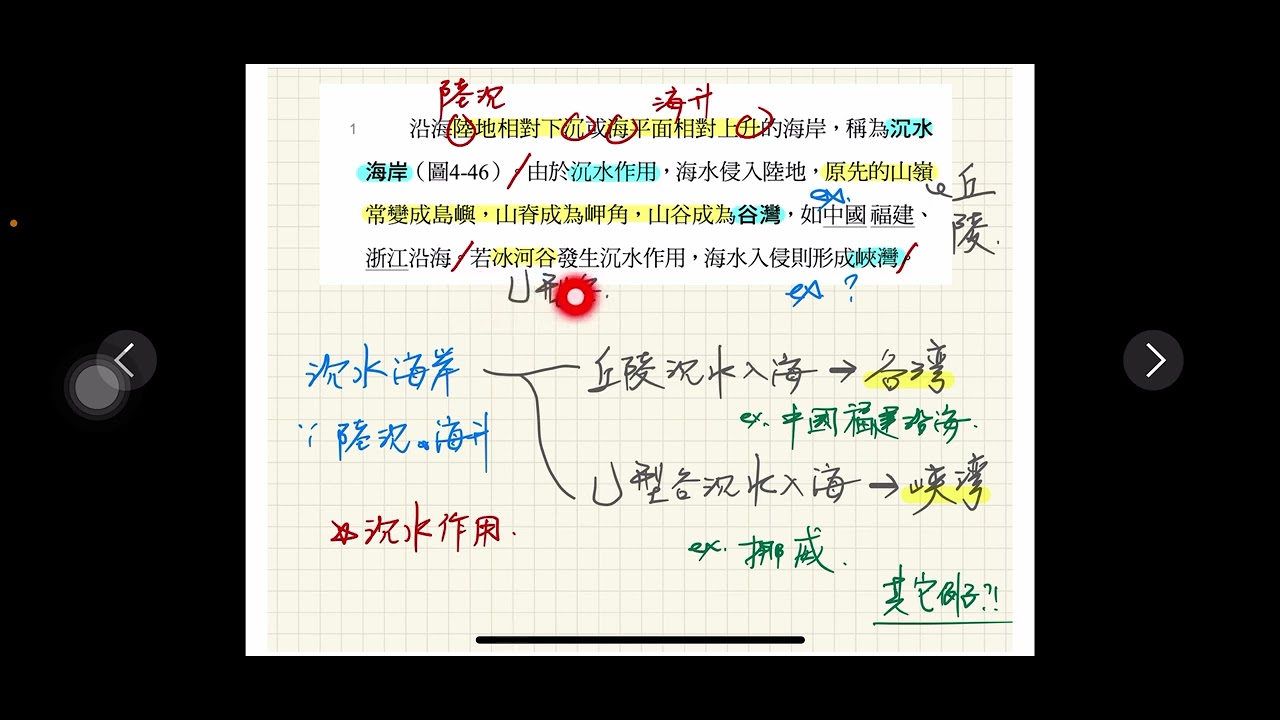 陸沉 海升
1 沿海陸地相對下沉或海平面相對上升的海岸，稱為沉水
海岸（圖4-46）。由於沉水作用，海水侵入陸地，原先的山嶺
丘陵.
ex.
常變成島嶼，山脊成為岬角，山谷成為谷灣，如中國福建、
浙江沿海。若冰河谷發生沉水作用，海水入侵則形成峽灣。
U型谷. ex ?
沉水海岸 丘陵沉水入海→谷湾
ex. 中國福建沿海.
∵陸沉。海升
U型谷沉水入海→峽湾
☆沉水作用.
ex. 挪威.
其它例子?!